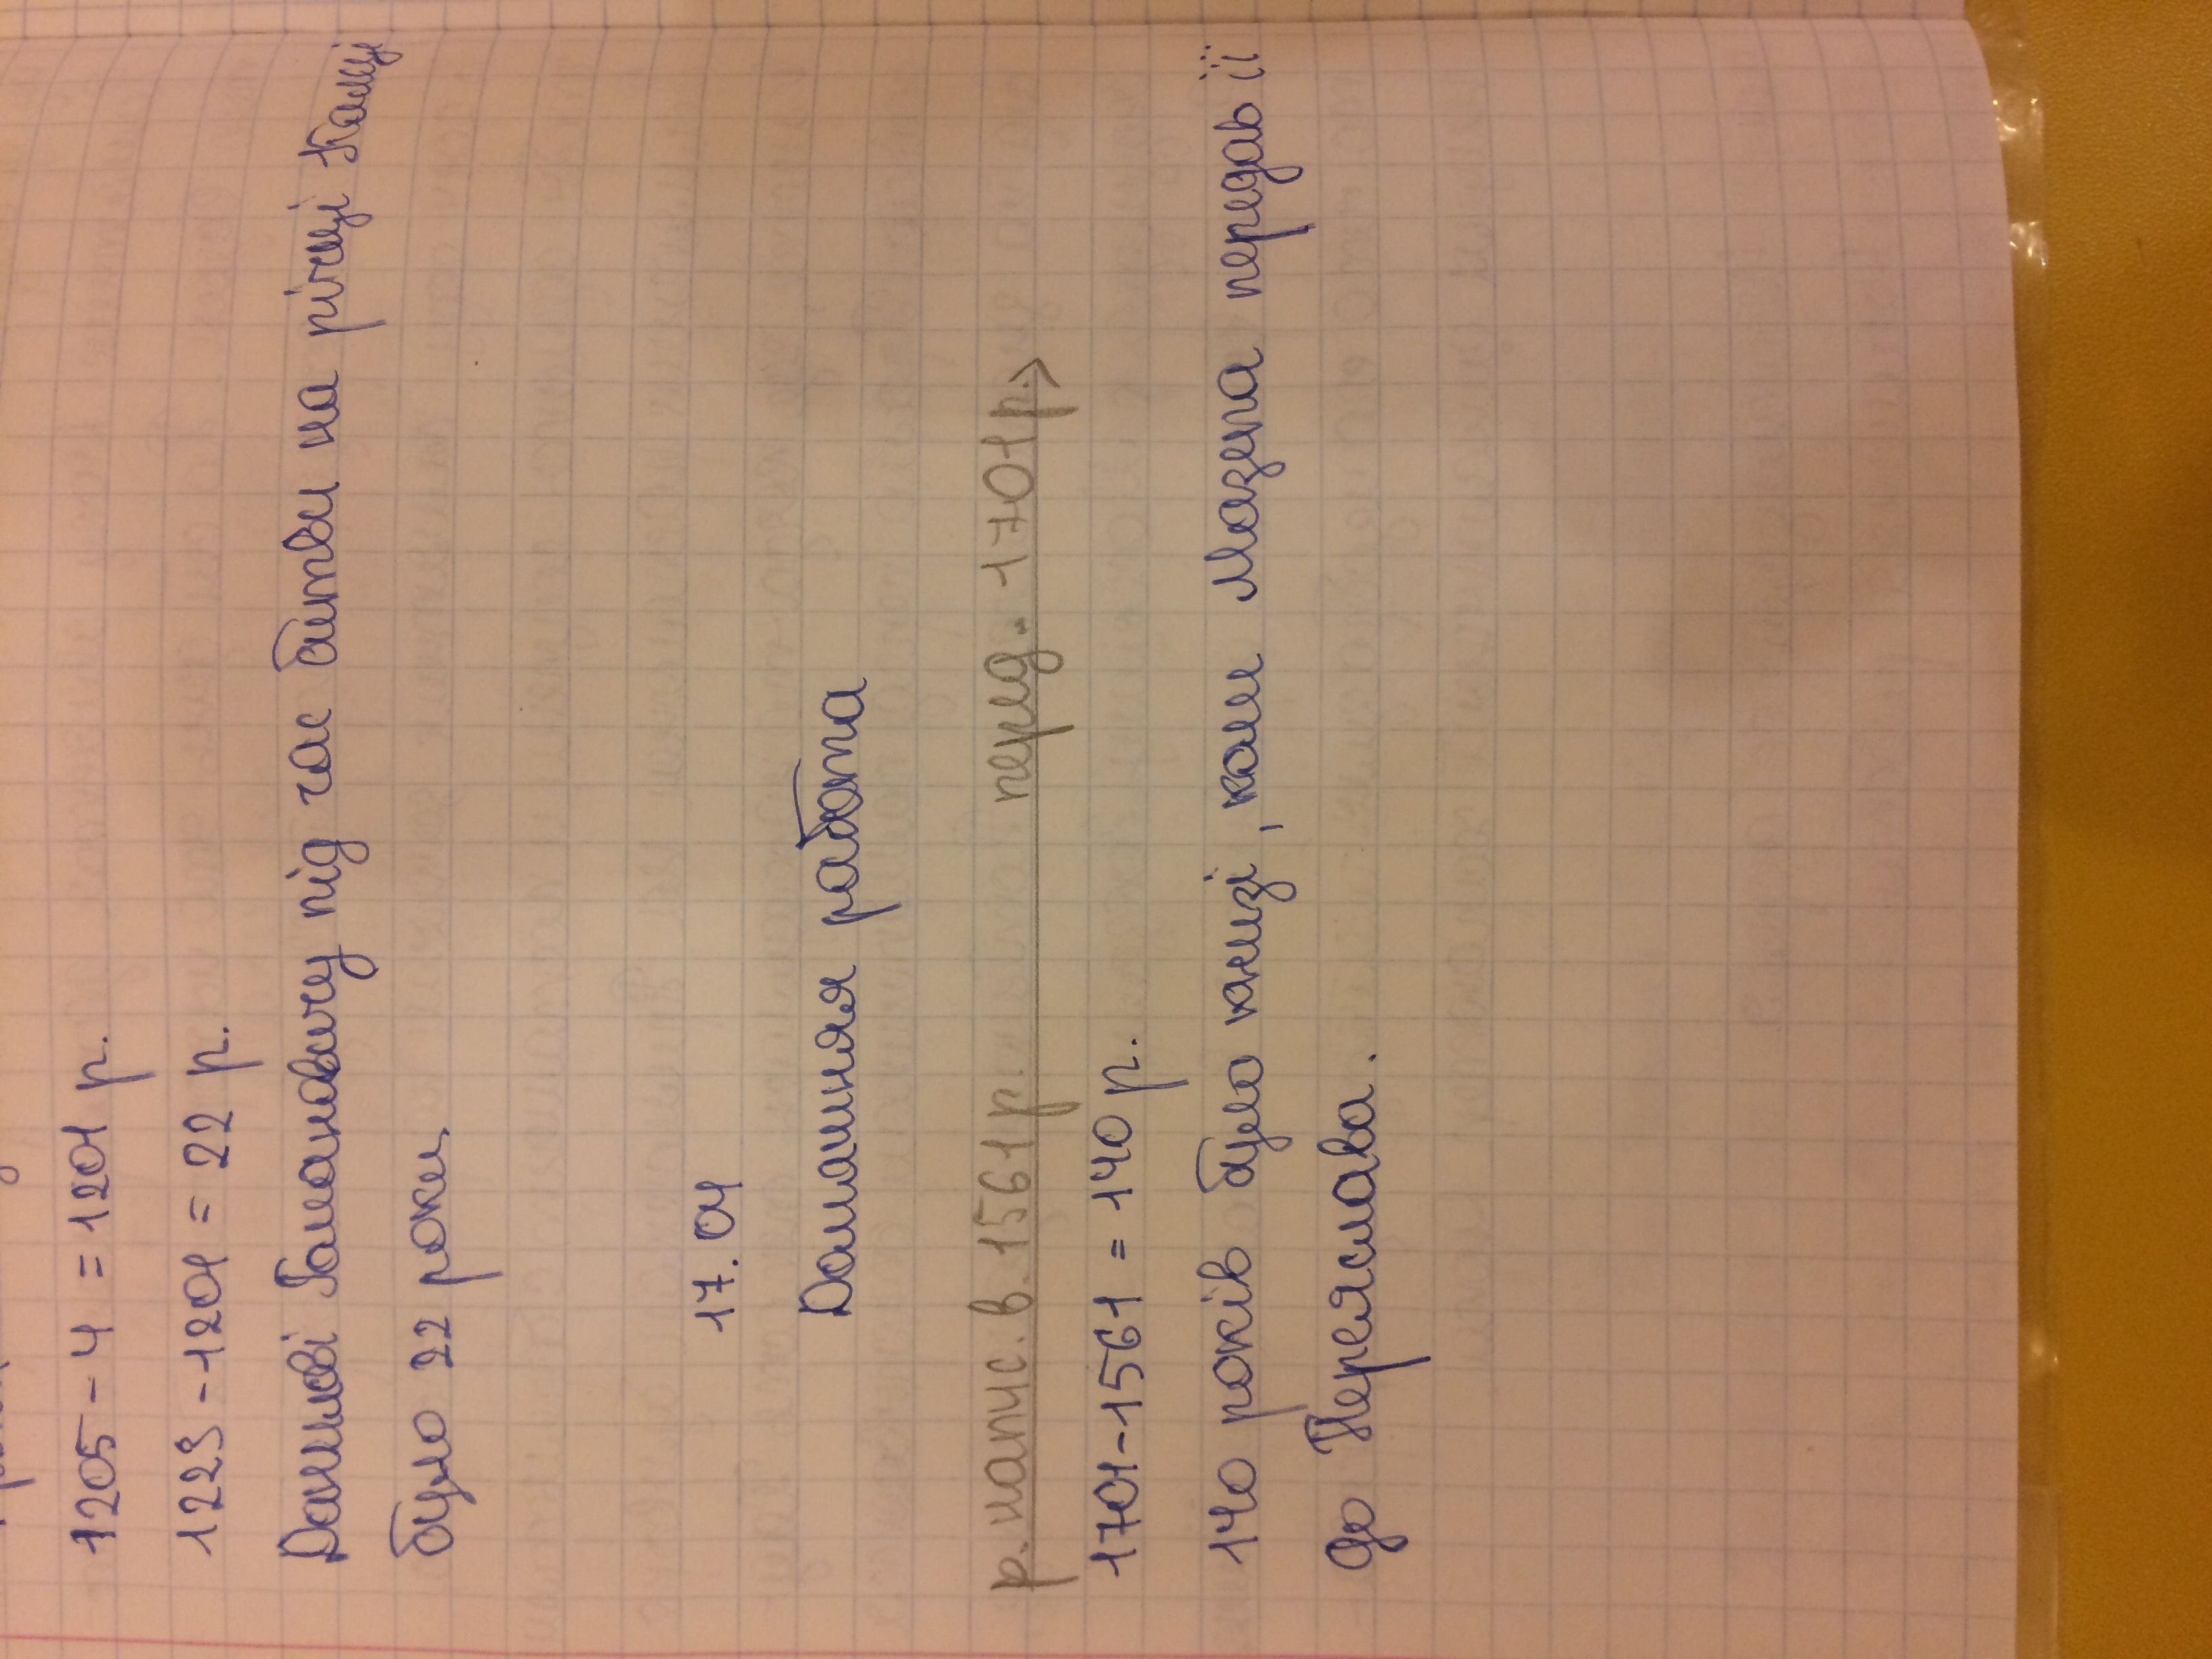 1205 - 4 = 1201 р.
1223 - 1201 = 22 р.
Данилові Романовичу під час битви на річці Калці
було 22 роки.
17.04
Домашня работа
р. напис. в. 1561 р. перед. 1701 р.
1701 - 1561 = 140 р.
140 років було книзі, коли Мазепа передав її
до Переяслава.